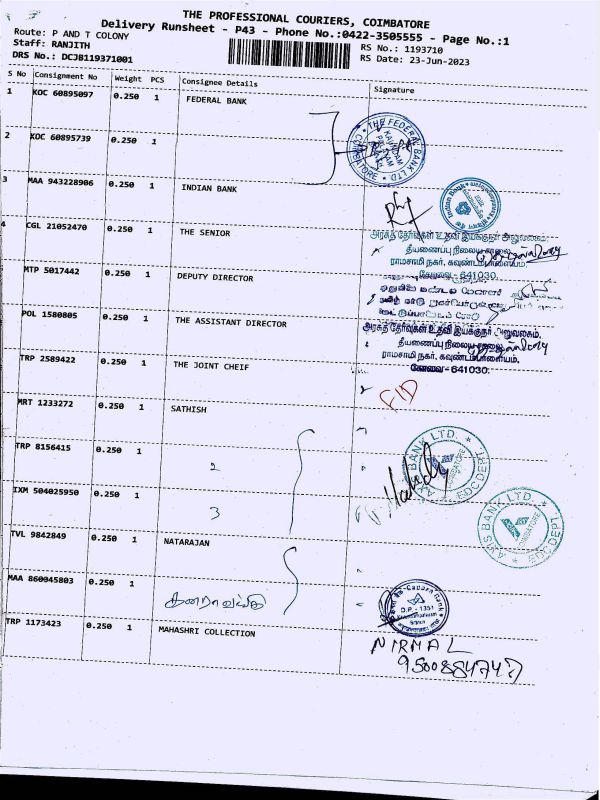 THE PROFESSIONAL COURIERS, COIMBATORE
Delivery Runsheet - P43 - Phone No.:0422-3505555 - Page No.:1
Route: P AND T COLONY
Staff: RANJITH
RS No.: 1193710
DRS No.: DCJB119371001
RS Date: 23-Jun-2023
S No Consignment No Weight PCS Consignee Details Signature
1 KOC 60895097 0.250 1 FEDERAL BANK
THE FEDERAL BANK LTD.
COIMBATORE
2 KOC 60895739 0.250 1
3 MAA 943228906 0.250 1 INDIAN BANK
Indian Bank
4 CGL 21052470 0.250 1 THE SENIOR
அரசுத் தேர்வுகள் உதவி இயக்குநர் அலுவலகம்,
தீயணைப்பு நிலைய சாலை,
ராமசாமி நகர், கவுண்டம்பாளையம்,
கோவை - 641030.
MTP 5017442 0.250 1 DEPUTY DIRECTOR
POL 1580805 0.250 1 THE ASSISTANT DIRECTOR
அரசுத் தேர்வுகள் உதவி இயக்குநர் அலுவலகம்,
தீயணைப்பு நிலைய சாலை,
ராமசாமி நகர், கவுண்டம்பாளையம்,
கோவை - 641030.
TRP 2589422 0.250 1 THE JOINT CHEIF
MRT 1233272 0.250 1 SATHISH
TRP 8156415 0.250 1 2
AXIS BANK LTD.
COIMBATORE
IXM 504025950 0.250 1 3
AXIS BANK LTD.
COIMBATORE
TVL 9842849 0.250 1 NATARAJAN
MAA 860045803 0.250 1
D.P. - 1351
TRP 1173423 0.250 1 MAHASHRI COLLECTION
NIRMAL